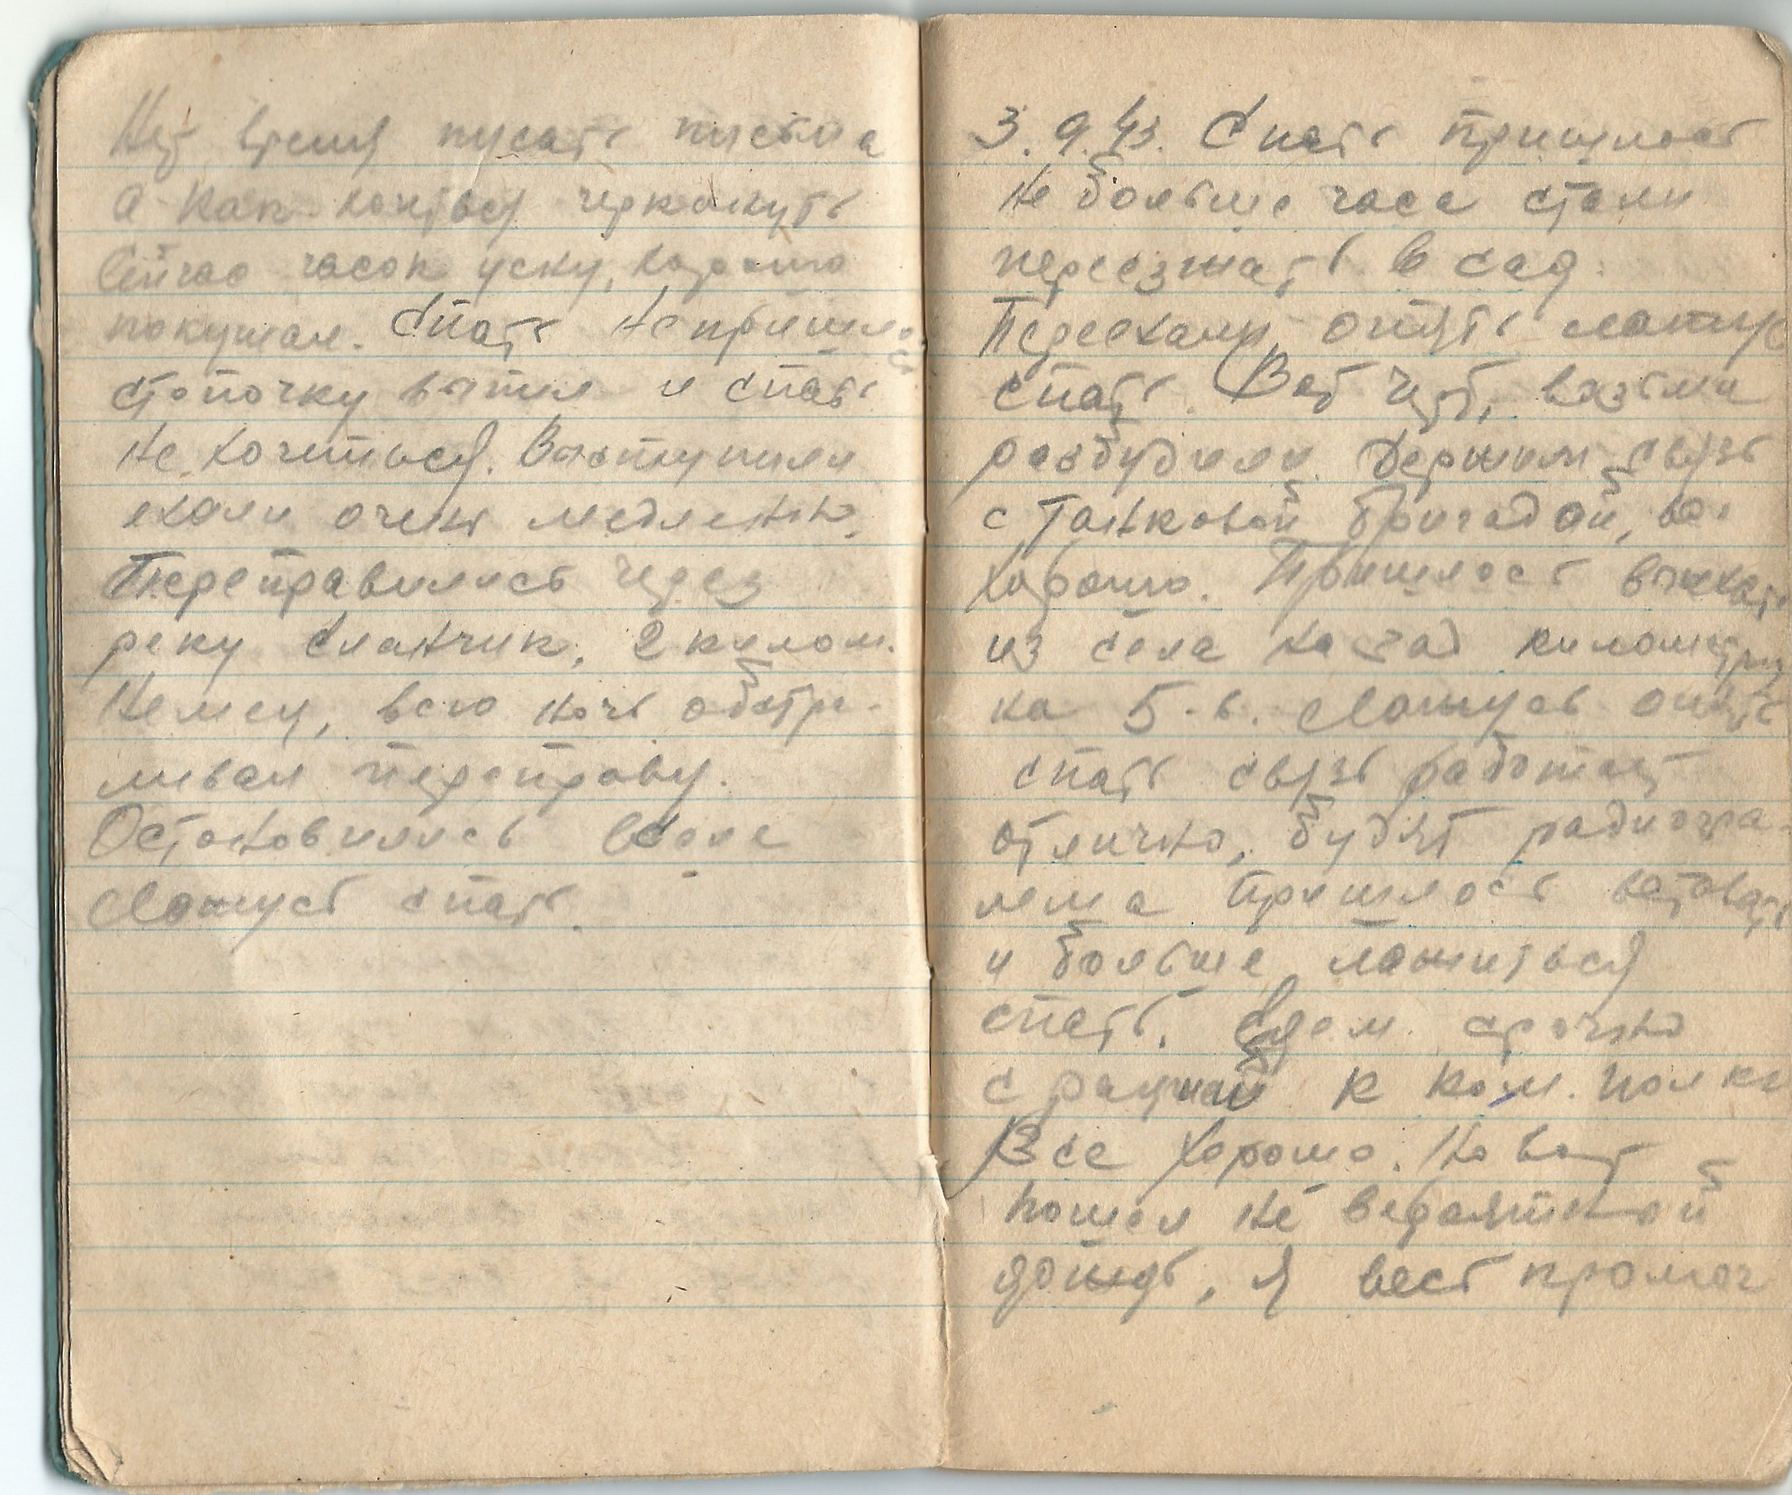 Нет время писать письма
а как хоиться черкануть
Сейчас часок усну, хорошо
покушал. Спать не пришлось
стопочку выпил и спать
не хочиться. Выступили
ехали очень медленно,
Переправились через
реку Сланчик, 2 килом.
Немец, всю ночь обстре-
ливал переправу.
Остановились в селе
Ложусь спать.
3.9.43. Спать пришлось
не больше часа стали
переезжать в сад.
Переехали опять ложусь
спать. Вот черт, возьми
разбудили. Держим связь
с танковой бригадой, все
хорошо. Пришлось выехать
из села назад километри
на 5-6. Ложусь опять
спать связь работает
отлично, будят радиогра
мма пришлось вставать
и больше ложиться
спать. Едем срочно
с рацией к ком. полка
Все хорошо. Но вот
пошел не вероятной
дождь, я весь промок